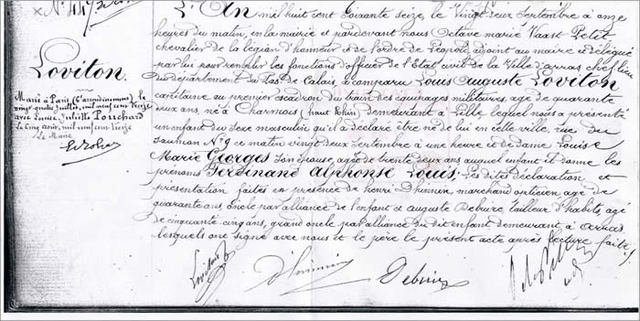 N° 447
Loviton.
Marié à Paris (6e arrondissement) le
vingt quatre juillet, mil neuf cent treize
avec Louise Juliette Pouchard
Le cinq août, mil neuf cent treize
Le Maire
L'An mil huit cent soixante seize, le Vingt deux Septembre à onze
heures du matin, en la mairie et pardevant nous Octave Marie Vaast Petit
chevalier de la légion d'honneur & de l'ordre de adjoint au maire et délégué
par lui pour remplir les fonctions d'officier de l'Etat civil de la Ville d'Arras chef lieu
du département du Pas de Calais, à comparu Louis Auguste Loviton
capitaine au premier escadron du train des équipages militaires, agé de quarante
deux ans, né à Charmois (haut Rhin) demeurant à Lille lequel nous a présenté
un enfant du sexe masculin qu'il a déclaré être né de lui en cette ville, rue du
Saumon N° 9 ce matin vingt deux Septembre à une heure et de dame Louise
Marie Georges son épouse, agée de trente deux ans auquel enfant il donne les
prénoms Ferdinand Alphonse Louis. Les dites déclaration et
présentation faites en présence de henri marchand opticien agé de
quarante ans, oncle par alliance de l'enfant et auguste Debuire tailleur d'habits, agé
de cinquante cinq ans, grand oncle par alliance du dit enfant demeurant à Arras
lesquels ont signé avec nous et le père le présent acte après lecture faite.
Loviton Debuire